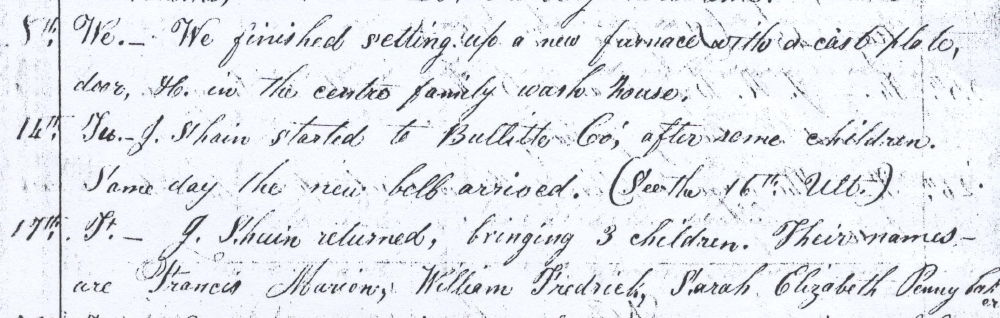 8th. We.– We finished setting up a new furnace with a cast plate,
door, &c. in the centre family wash house.
14th. Tu.– J. Shain started to Bullitt Co; after some children.
Same day the new bell arrived. (See the 16th. Ult.)
17th. Fr.– J. Shain returned, bringing 3 children. Their names–
are Francis Marion, William Fredrick, Sarah Elizabeth Pennybaker